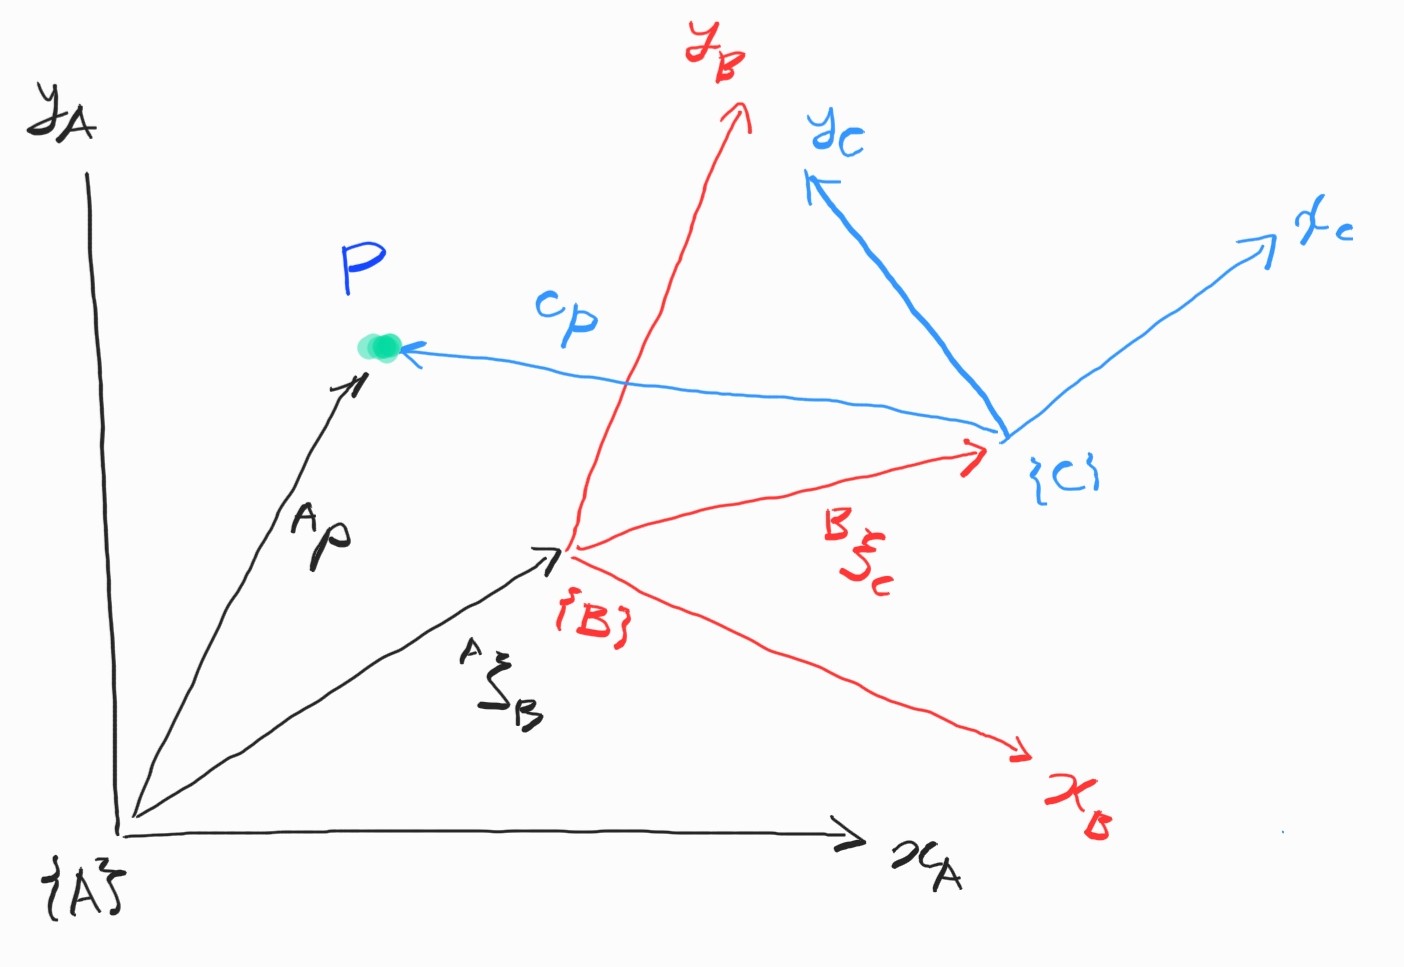 y_B
y_A
y_C
x_c
P
^C p
{C}
^A p
^B ξ_c
{B}
^A ξ_B
x_B
{A}
x_A